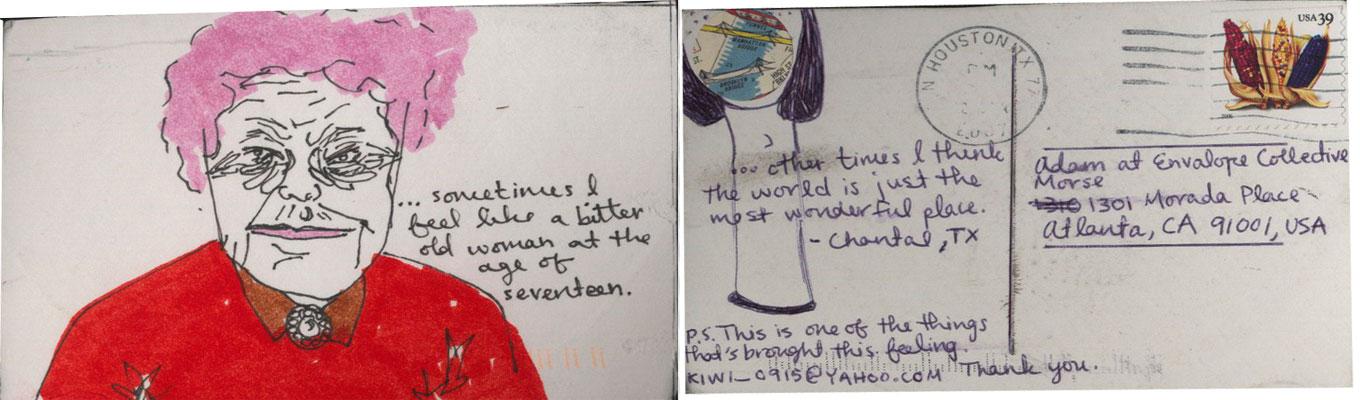 ... sometimes I
feel like a bitter
old woman at the
age of
seventeen.
MANHATTAN
BRIDGE
BROOKLYN
BRIDGE
N HOUSTON TX 77
PM
USA 39
2006
... other times I think
the world is just the
most wonderful place.
- Chantal, TX
P.S. This is one of the things
that's brought this feeling.
KIWI_0915@YAHOO.COM Thank you.
Adam at Envalope Collective
Morse
1310 1301 Morada Place
atlanta, CA 91001, USA